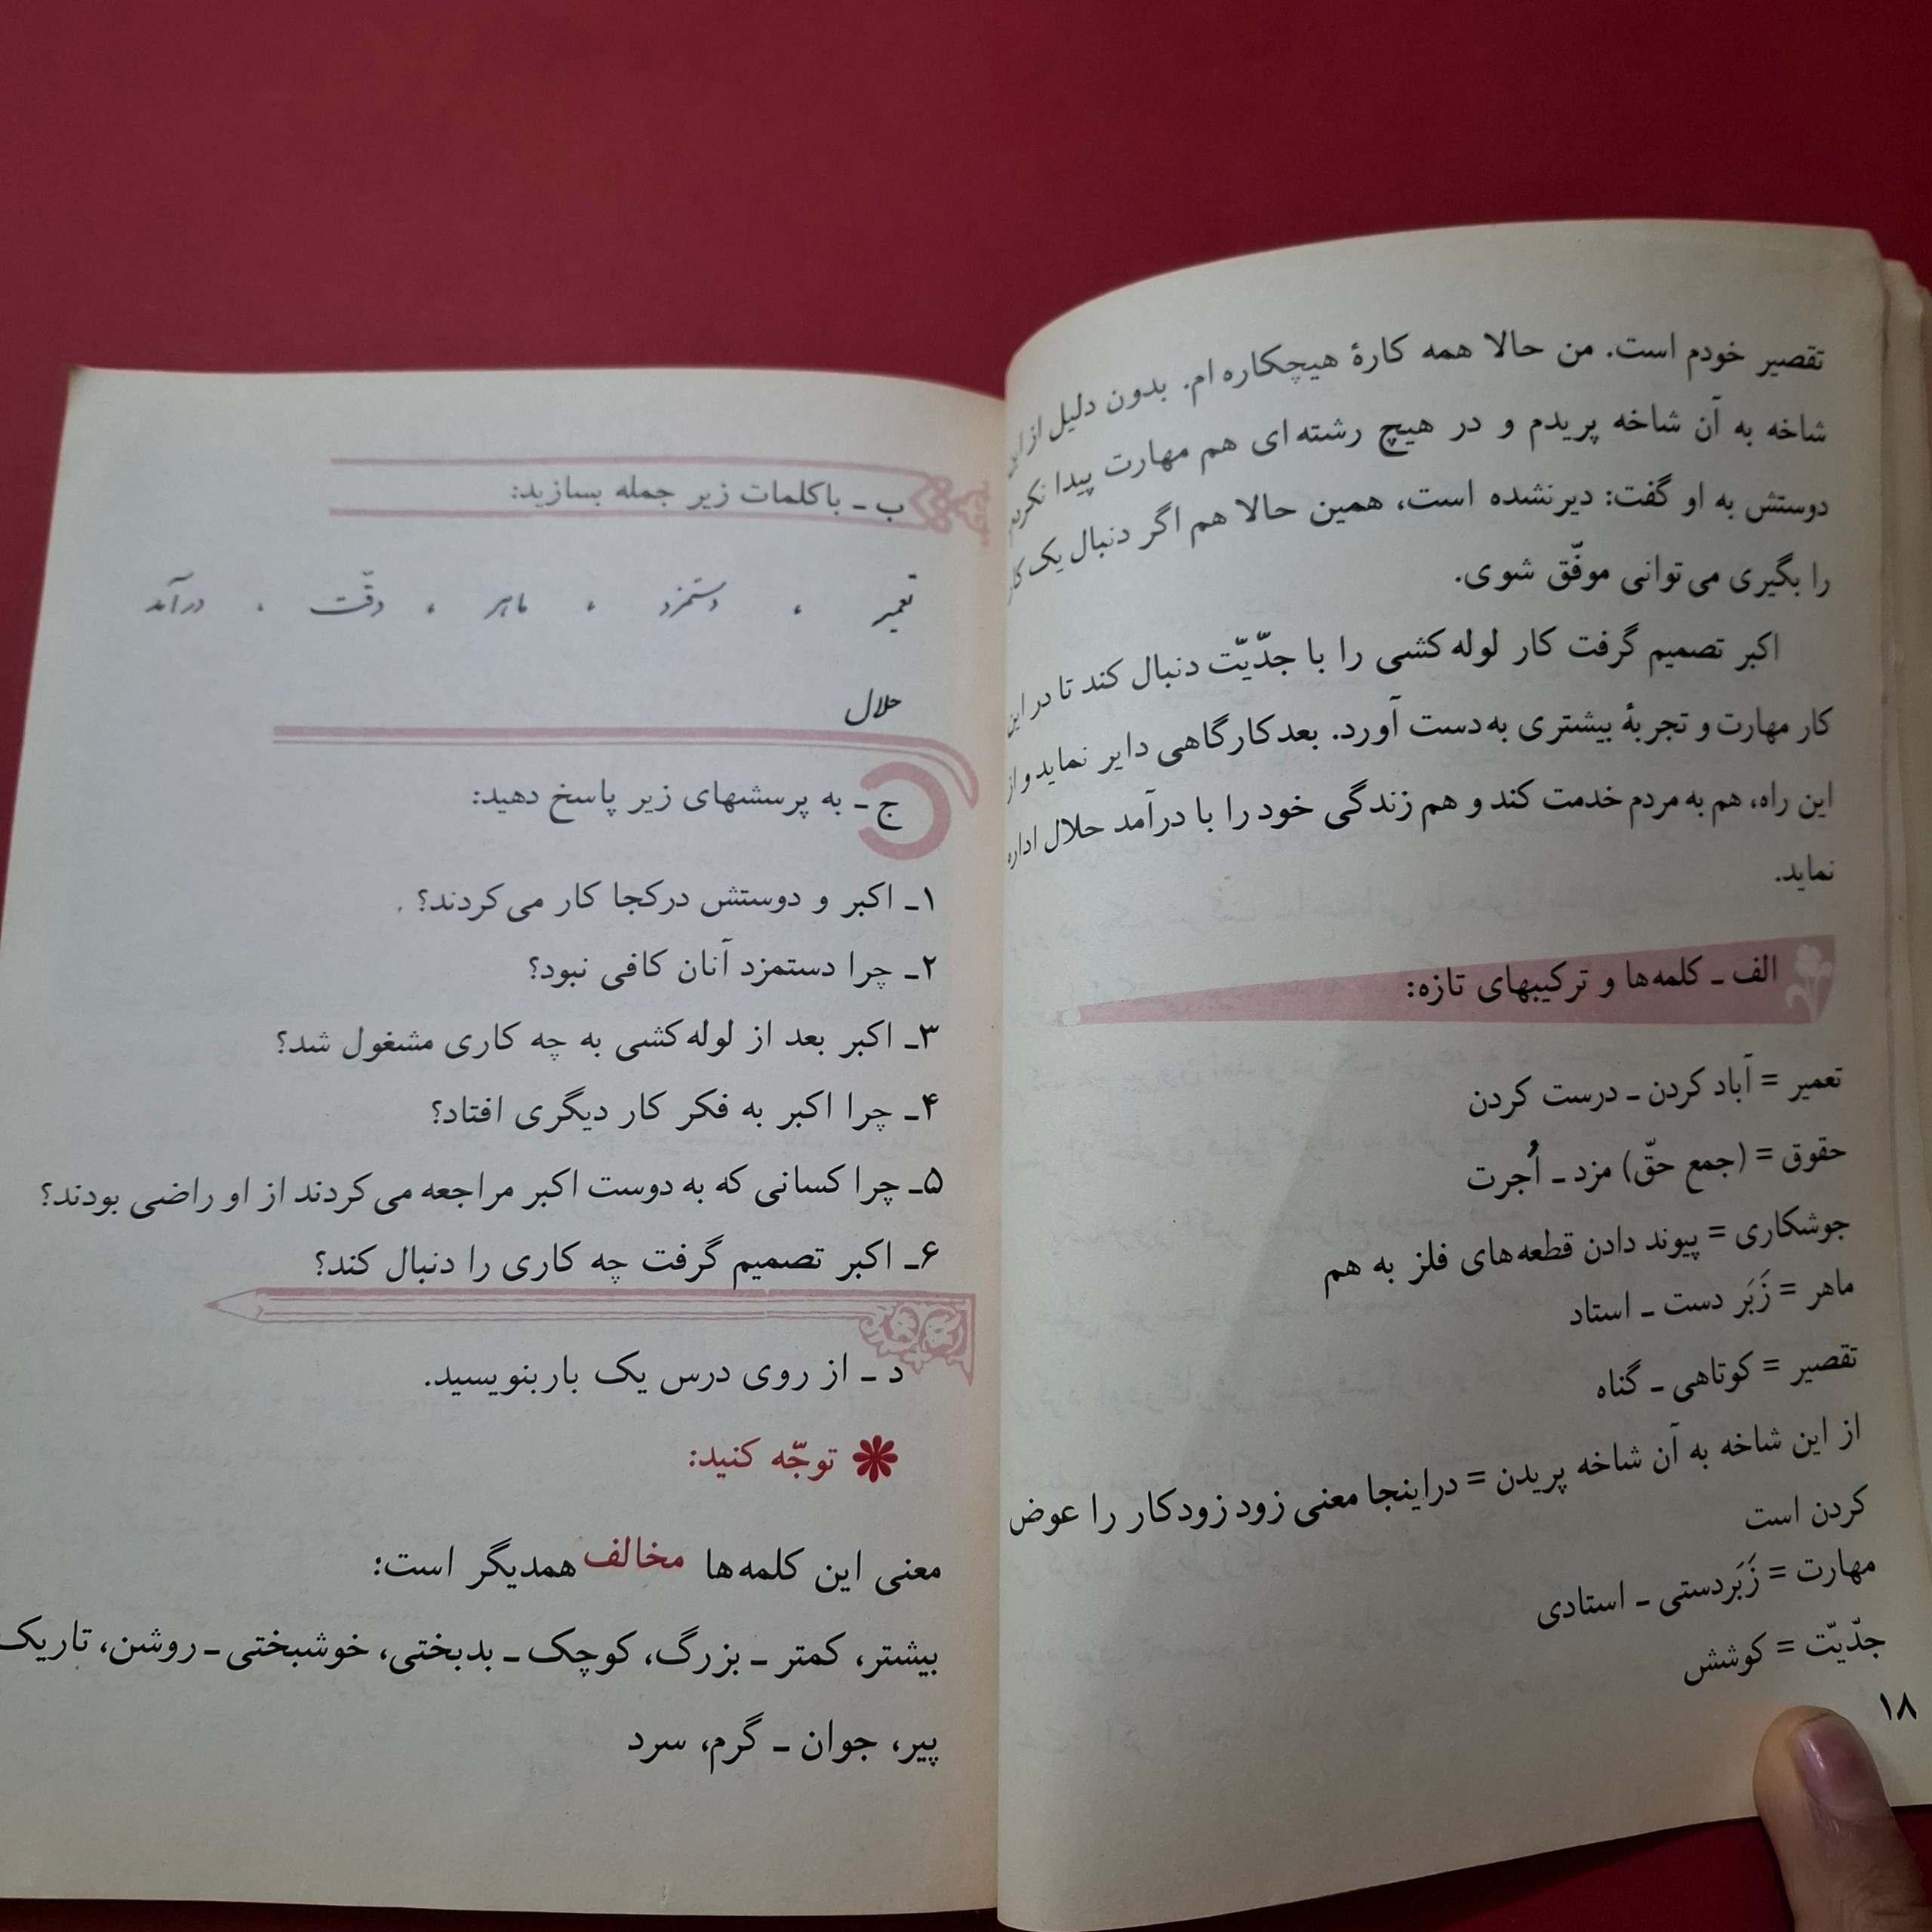 تقصیر خودم است. من حالا همه کارهٔ هیچکاره ام. بدون دلیل از این
شاخه به آن شاخه پریدم و در هیچ رشته ای هم مهارت پیدا
دوستش به او گفت: دیرنشده است، همین حالا هم اگر دنبال یک
را بگیری می توانی موفّق شوی.
اکبر تصمیم گرفت کار لوله کشی را با جدّیّت دنبال کند تا در این
کار مهارت و تجربهٔ بیشتری به دست آورد. بعد کارگاهی دایر نماید و از
این راه، هم به مردم خدمت کند و هم زندگی خود را با درآمد حلال اداره
نماید.
الف ـ کلمه ها و ترکیبهای تازه:
تعمیر = آباد کردن ـ درست کردن
حقوق = (جمع حقّ) مزد ـ اُجرت
جوشکاری = پیوند دادن قطعه های فلز به هم
ماهر = زَبَر دست ـ استاد
تقصیر = کوتاهی ـ گناه
از این شاخه به آن شاخه پریدن = دراینجا معنی زود زود کار را عوض
کردن است
مهارت = زَبَردستی ـ استادی
جدّیّت = کوشش
۱۸
ب ـ باکلمات زیر جمله بسازید:
تعمیر ، دستمزد ، ماهر ، دقّت ، درآمد
حلال
ج ـ به پرسشهای زیر پاسخ دهید:
۱ـ اکبر و دوستش درکجا کار می کردند؟
۲ـ چرا دستمزد آنان کافی نبود؟
۳ـ اکبر بعد از لوله کشی به چه کاری مشغول شد؟
۴ـ چرا اکبر به فکر کار دیگری افتاد؟
۵ـ چرا کسانی که به دوست اکبر مراجعه می کردند از او راضی بودند؟
۶ـ اکبر تصمیم گرفت چه کاری را دنبال کند؟
د ـ از روی درس یک بار بنویسید.
توجّه کنید:
معنی این کلمه ها مخالف همدیگر است:
بیشتر، کمتر ـ بزرگ، کوچک ـ بدبختی، خوشبختی ـ روشن، تاریک
پیر، جوان ـ گرم، سرد